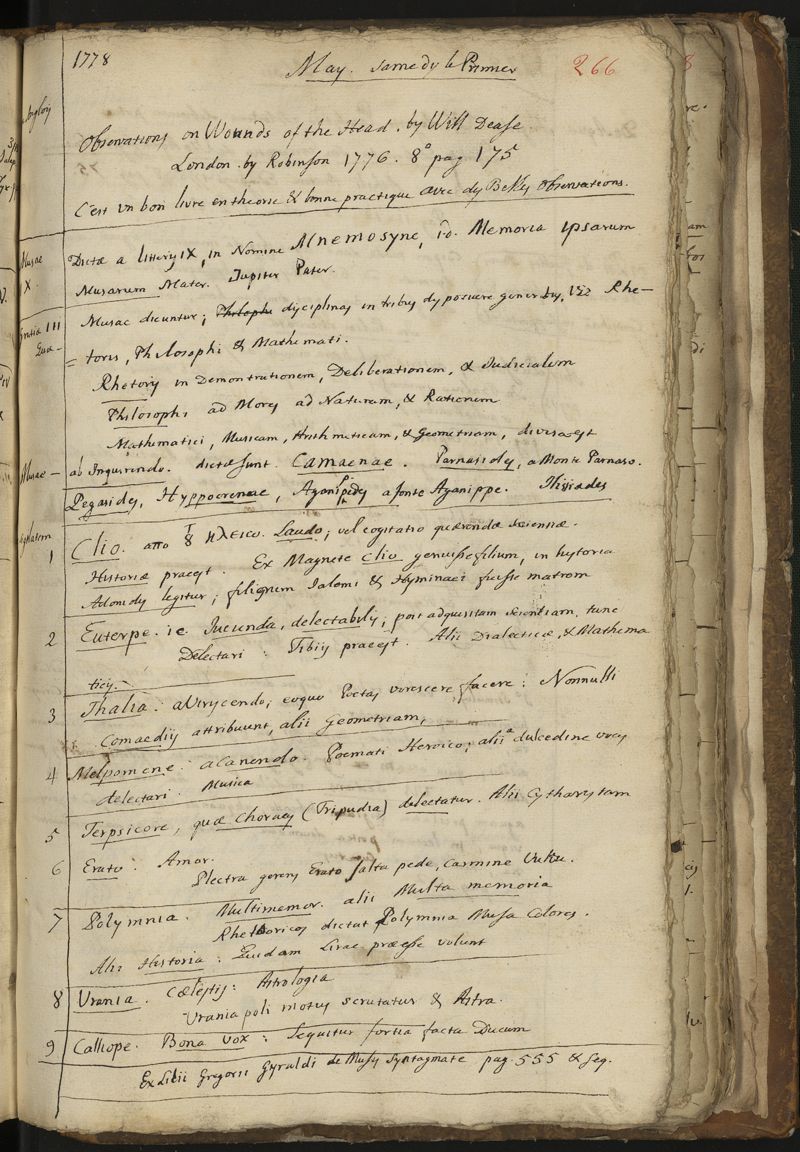 1778
May. samedy le Premier
266
Observations on Wounds of the Head. by Will Dease
London. by Robinson 1776. 8° pag 175
C'est un bon livre en theorie & bonne practique avec dy Belles Observations.
Musae
IX
Dictæ a litterys IX, in Nomine Mnemosyne, i.o. Memoria ipsarum
Musarum Mater. Jupiter Pater.
Musae dicuntur; Philosophi disciplinas in tribus dysposuere generibus, viz Rhe-
Gratiæ III
= toris, Philosophi & Mathemati.
Rhetorys in Demonstrationem, Deliberationem, & Judicialem
Philosophi ad Mores ad Naturam, & Rationem
Mathematici, Musicam, Arithmeticam, & Geometriam, diversa est
Musae -
ab Inquirendo. dictæ sunt. Camaenae. Parnasides, a Monte Parnaso.
Pegasides, Hyppocrenae, Aganippides a fonte Aganippe. Ilisiades
1 Clio. απο Laudo; vel cogitatio quærendæ scientiæ.
Historiæ praeest. Ex Magnete Clio genuisse filium, in hystoria
Adonidys legitur; filiquem Ialemi & Hyminaei fuisse matrem
2 Euterpe. i.e. Jucunda, delectabilys; post adquisitam scientiam. tunc
Delectari: Tibiys praeest. Alii Dialecticæ, & Mathema
ticys.
3 Thalia. a Virescendo, eoque Poetas virescere facere: Nonnulli
Comaediys attribuunt, alii Geometriam,
4 Melpomene. a Canendo. Poemati Heroico; alii a dulcedine vocys
delectari. Musica
5 Terpsicore, quæ Choraeys (Tripudia) delectatur. Alii Cytharystam
6 Erato. Amor.
Plectra gerens Erato saltat pede, Carmine Vultu.
7 Polymnia. Multimemor. alii Multa memoria
Rhetoricos dictat Polymnia Musa Colores.
Alii Historia: Quidam Liræ præesse volunt
8 Urania. Cælestys: Astrologia
Urania poli motus scrutatur & Astra.
9 Calliope. Bona Vox: Sequitur fortia facta Ducum
Ex Lilii Gregorii Gyraldi de Musys Syntagmate pag. 555 & seq.